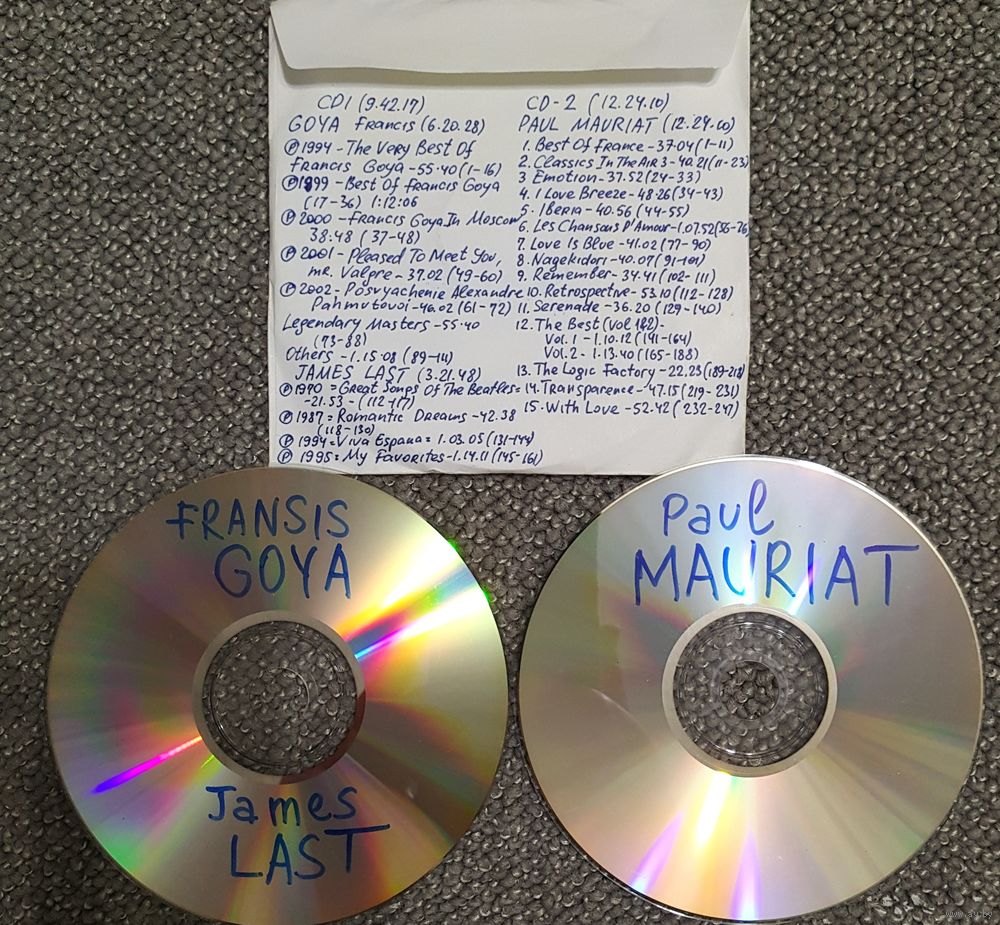 CD1 (9.42.17)
GOYA Francis (6.20.28)
Ⓟ1994 - The Very Best Of
Francis Goya - 55.40 (1-16)
Ⓟ1999 - Best Of Francis Goya
(17-36) 1:12:06
Ⓟ 2000 - Francis Goya In Moscow
38:48 (37-48)
Ⓟ 2001 - Pleased To Meet You,
mr. Valpre - 37.02 (49-60)
Ⓟ 2002 - Posvyachenie Alexandre
Pahmutovoi - 46.02 (61-72)
Legendary Masters - 55.40
(73-88)
Others - 1.15.08 (89-111)
JAMES LAST (3.21.48)
Ⓟ1970 = Great Songs Of The Beatles =
-21.53 - (112-117)
Ⓟ 1987 = Romantic Dreams - 42.38
(118-130)
Ⓟ 1994 = Viva Espana = 1.03.05 (131-144)
Ⓟ 1995 = My Favorites - 1.14.11 (145-161)
CD-2 (12.24.10)
PAUL MAURIAT (12.24.10)
1. Best Of France - 37.04 (1-11)
2. Classics In The AIR 3 - 40.21 (11-23)
3 Emotion - 37.52 (24-33)
4. I Love Breeze - 48.26 (34-43)
5. Iberia - 40.56 (44-55)
6. Les Chansons D'Amour - 1.07.52 (56-76)
7. Love Is Blue - 41.02 (77-90)
8. Nagekidori - 40.07 (91-101)
9. Remember - 34.41 (102-111)
10. Retrospective - 53.10 (112-128)
11. Serenade - 36.20 (129-140)
12. The Best (Vol 1&2) -
Vol. 1 - 1.10.12 (141-164)
Vol. 2 - 1.13.40 (165-188)
13. The Logic Factory - 22.23 (189-218)
14. Transparence - 47.15 (219-231)
15. With Love - 52.42 (232-247)
FRANSIS
GOYA
James
LAST
Paul
MAURIAT
www.ay.by